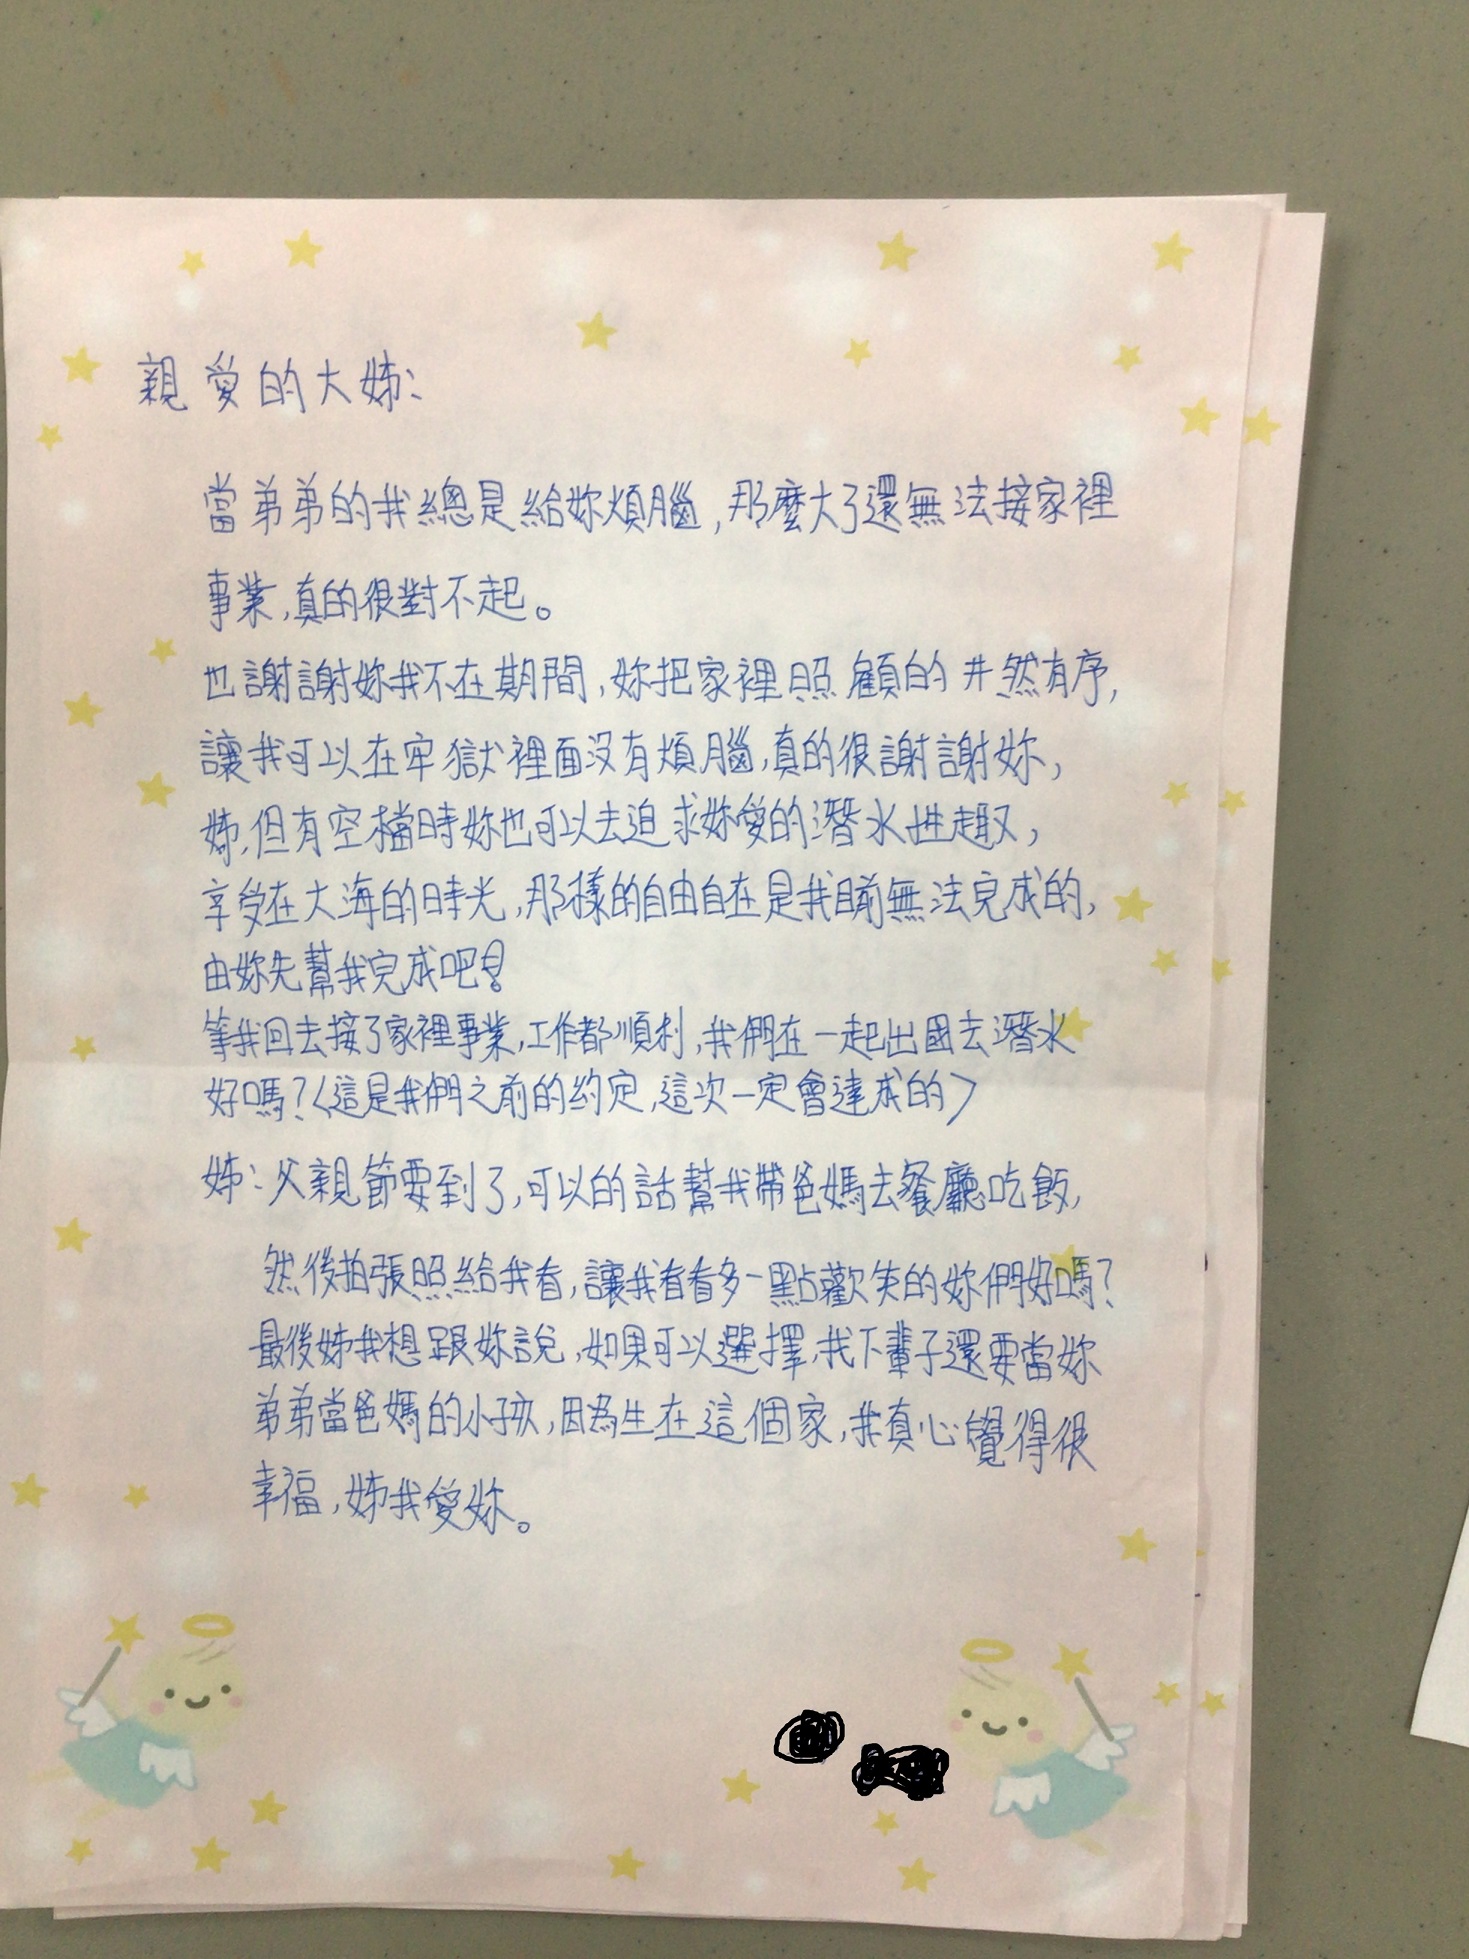 親愛的大姊:
當弟弟的我總是給妳煩腦,那麼大了還無法接家裡
事業,真的很對不起。
也謝謝妳我不在期間,妳把家裡照顧的井然有序,
讓我可以在牢獄裡面沒有煩腦,真的很謝謝妳,
姊,但有空檔時妳也可以去追求妳愛的潛水興趣,
享受在大海的時光,那樣的自由自在是我目前無法完成的,
由妳先幫我完成吧!
等我回去接了家裡事業,工作都順利,我們在一起出國去潛水
好嗎?〈這是我們之前的約定,這次一定會達成的〉
姊:父親節要到了,可以的話幫我帶爸媽去餐廳吃飯,
然後拍張照給我看,讓我看看多一點歡笑的妳們好嗎?
最後姊我想跟妳說,如果可以選擇,我下輩子還要當妳
弟弟當爸媽的小孩,因為生在這個家,我真心覺得很
幸福,姊我愛妳。